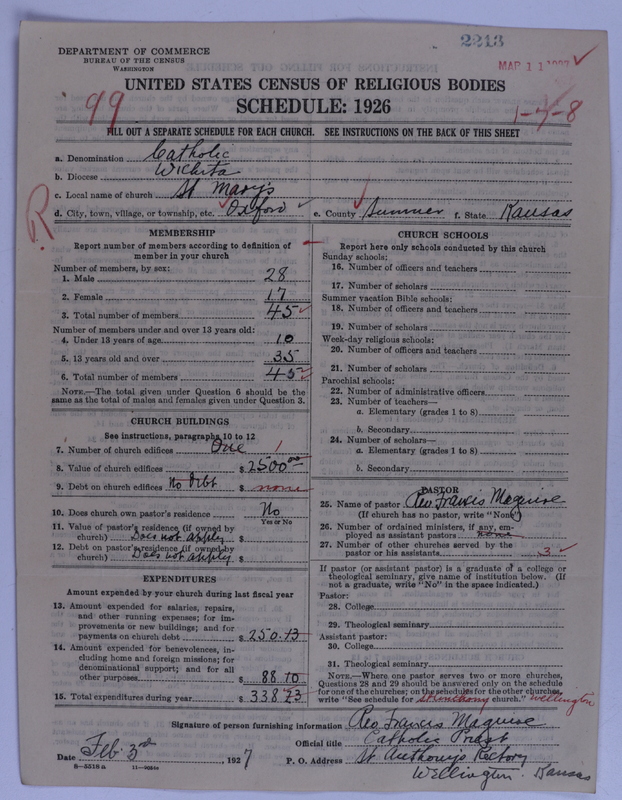 2213
DEPARTMENT OF COMMERCE
BUREAU OF THE CENSUS
WASHINGTON
MAR 11 1927
UNITED STATES CENSUS OF RELIGIOUS BODIES
SCHEDULE: 1926
99
1-7-8
FILL OUT A SEPARATE SCHEDULE FOR EACH CHURCH. SEE INSTRUCTIONS ON THE BACK OF THIS SHEET
a. Denomination Catholic
b. Diocese Wichita
c. Local name of church St Mary's
d. City, town, village, or township, etc. Oxford e. County Sumner f. State Kansas
R
MEMBERSHIP
Report number of members according to definition of
member in your church
Number of members, by sex:
1. Male 28
2. Female 17
3. Total number of members 45
Number of members under and over 13 years old:
4. Under 13 years of age 10
5. 13 years old and over 35
6. Total number of members 45
NOTE.—The total given under Question 6 should be
the same as the total of males and females given under Question 3.
CHURCH BUILDINGS
See instructions, paragraphs 10 to 12
7. Number of church edifices One 1
8. Value of church edifices $ 2500 00
9. Debt on church edifices No Debt $ none
10. Does church own pastor's residence No
Yes or No
11. Value of pastor's residence (if owned by
church) Does not apply $
12. Debt on pastor's residence (if owned by
church) Does not apply $
EXPENDITURES
Amount expended by your church during last fiscal year
13. Amount expended for salaries, repairs,
and other running expenses; for im-
provements or new buildings; and for
payments on church debt $ 250.13
14. Amount expended for benevolences, in-
cluding home and foreign missions; for
denominational support; and for all
other purposes $ 88 10
15. Total expenditures during year $ 338 23
CHURCH SCHOOLS
Report here only schools conducted by this church
Sunday schools:
16. Number of officers and teachers
17. Number of scholars
Summer vacation Bible schools:
18. Number of officers and teachers
19. Number of scholars
Week-day religious schools:
20. Number of officers and teachers
21. Number of scholars
Parochial schools:
22. Number of administrative officers
23. Number of teachers—
a. Elementary (grades 1 to 8)
b. Secondary
24. Number of scholars—
a. Elementary (grades 1 to 8)
b. Secondary
PASTOR
25. Name of pastor Rev Francis Maguire
(If church has no pastor, write "None")
26. Number of ordained ministers, if any, em-
ployed as assistant pastors none
27. Number of other churches served by the
pastor or his assistants 3
If pastor (or assistant pastor) is a graduate of a college or
theological seminary, give name of institution below. (If
not a graduate, write "No" in the space indicated.)
Pastor:
28. College
29. Theological seminary
Assistant pastor:
30. College
31. Theological seminary
NOTE.—Where one pastor serves two or more churches,
Questions 28 and 29 should be answered only on the schedule
for one of the churches; on the schedules for the other churches,
write "See schedule for St Anthony church." Wellington
Signature of person furnishing information Rev Francis Maguire
Official title Catholic Priest
Date Feb 3rd 1927 P. O. Address St Anthony's Rectory
Wellington Kansas
8-5318a